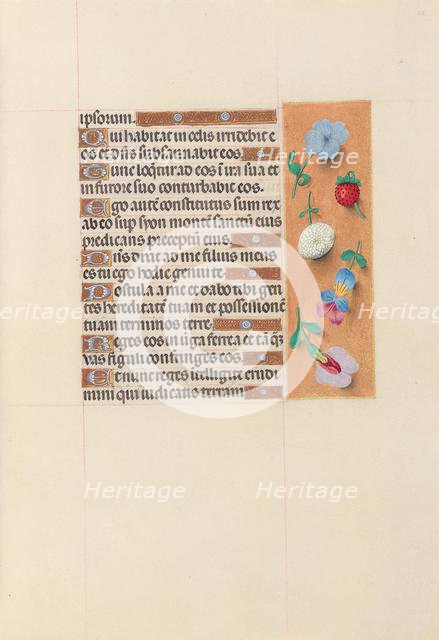 ipsorum.
Qui habitat in celis irridebit e
os et dn̄s subsannabit eos.
Tunc loq̄tur ad eos ī ira sua et
in furore suo conturbabit eos.
Ego autē constitutus sum rex
ab eo sup syon montē sanctū eius
predicans preceptū eius.
Dn̄s dixit ad me filius meus
es tu ego hodie genui te.
Postula a me et dabo tibi gen
tes hereditatē tuam et possessionē
tuam terminos terre.
Reges eos in uirga ferrea et tā q̄
vas figuli confringes eos.
Et nunc reges intelligite erudi
mini qui iudicatis terram.
Heritage